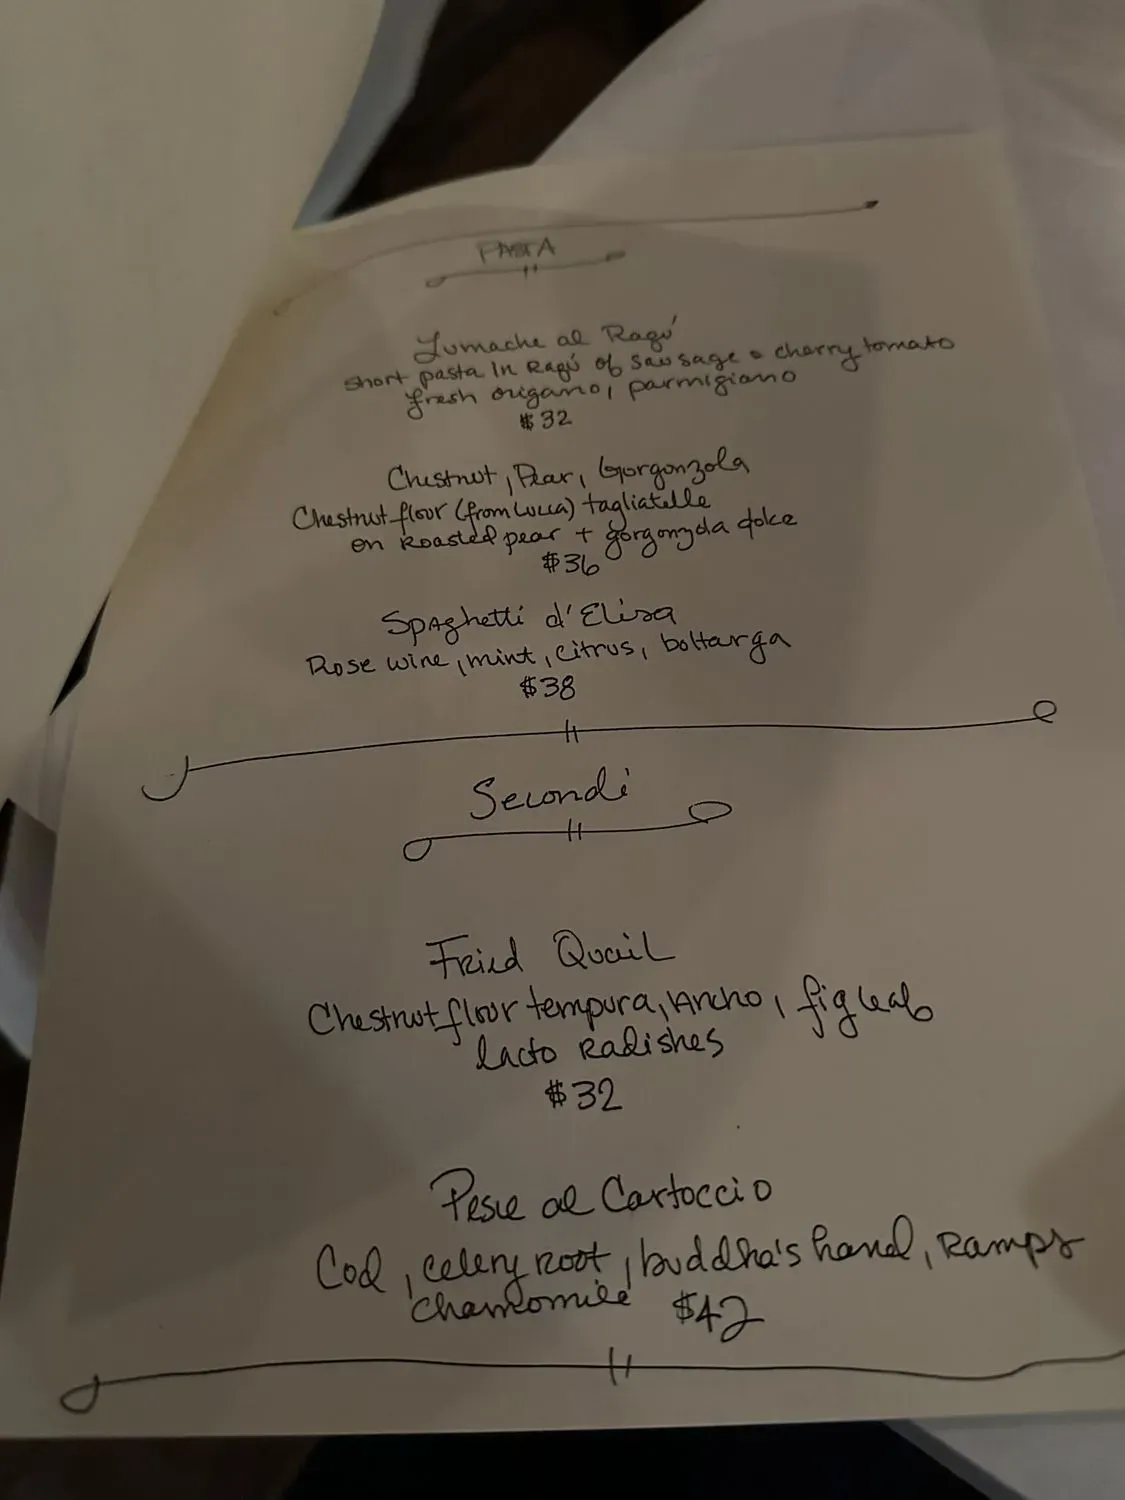 PASTA
Lumache al Ragú
short pasta in Ragú of sausage & cherry tomato
fresh origano, parmigiano
$32
Chestnut, Pear, Gorgonzola
Chestnut flour (from Lucca) tagliatelle
on Roasted pear + gorgonzola dolce
$36
Spaghetti d'Elisa
Rose wine, mint, citrus, bottarga
$38
Secondi
Fried Quail
Chestnut flour tempura, Ancho, fig leaf
lacto Radishes
$32
Pesce al Cartoccio
Cod, celery root, buddha's hand, Ramps
chamomile $42